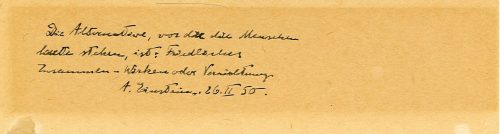 Die Alternative, vor der die Menschen
heute stehen, ist: Friedliches
Zusammen-Wirken oder Vernichtung.
A. Einstein. 26. II 50.